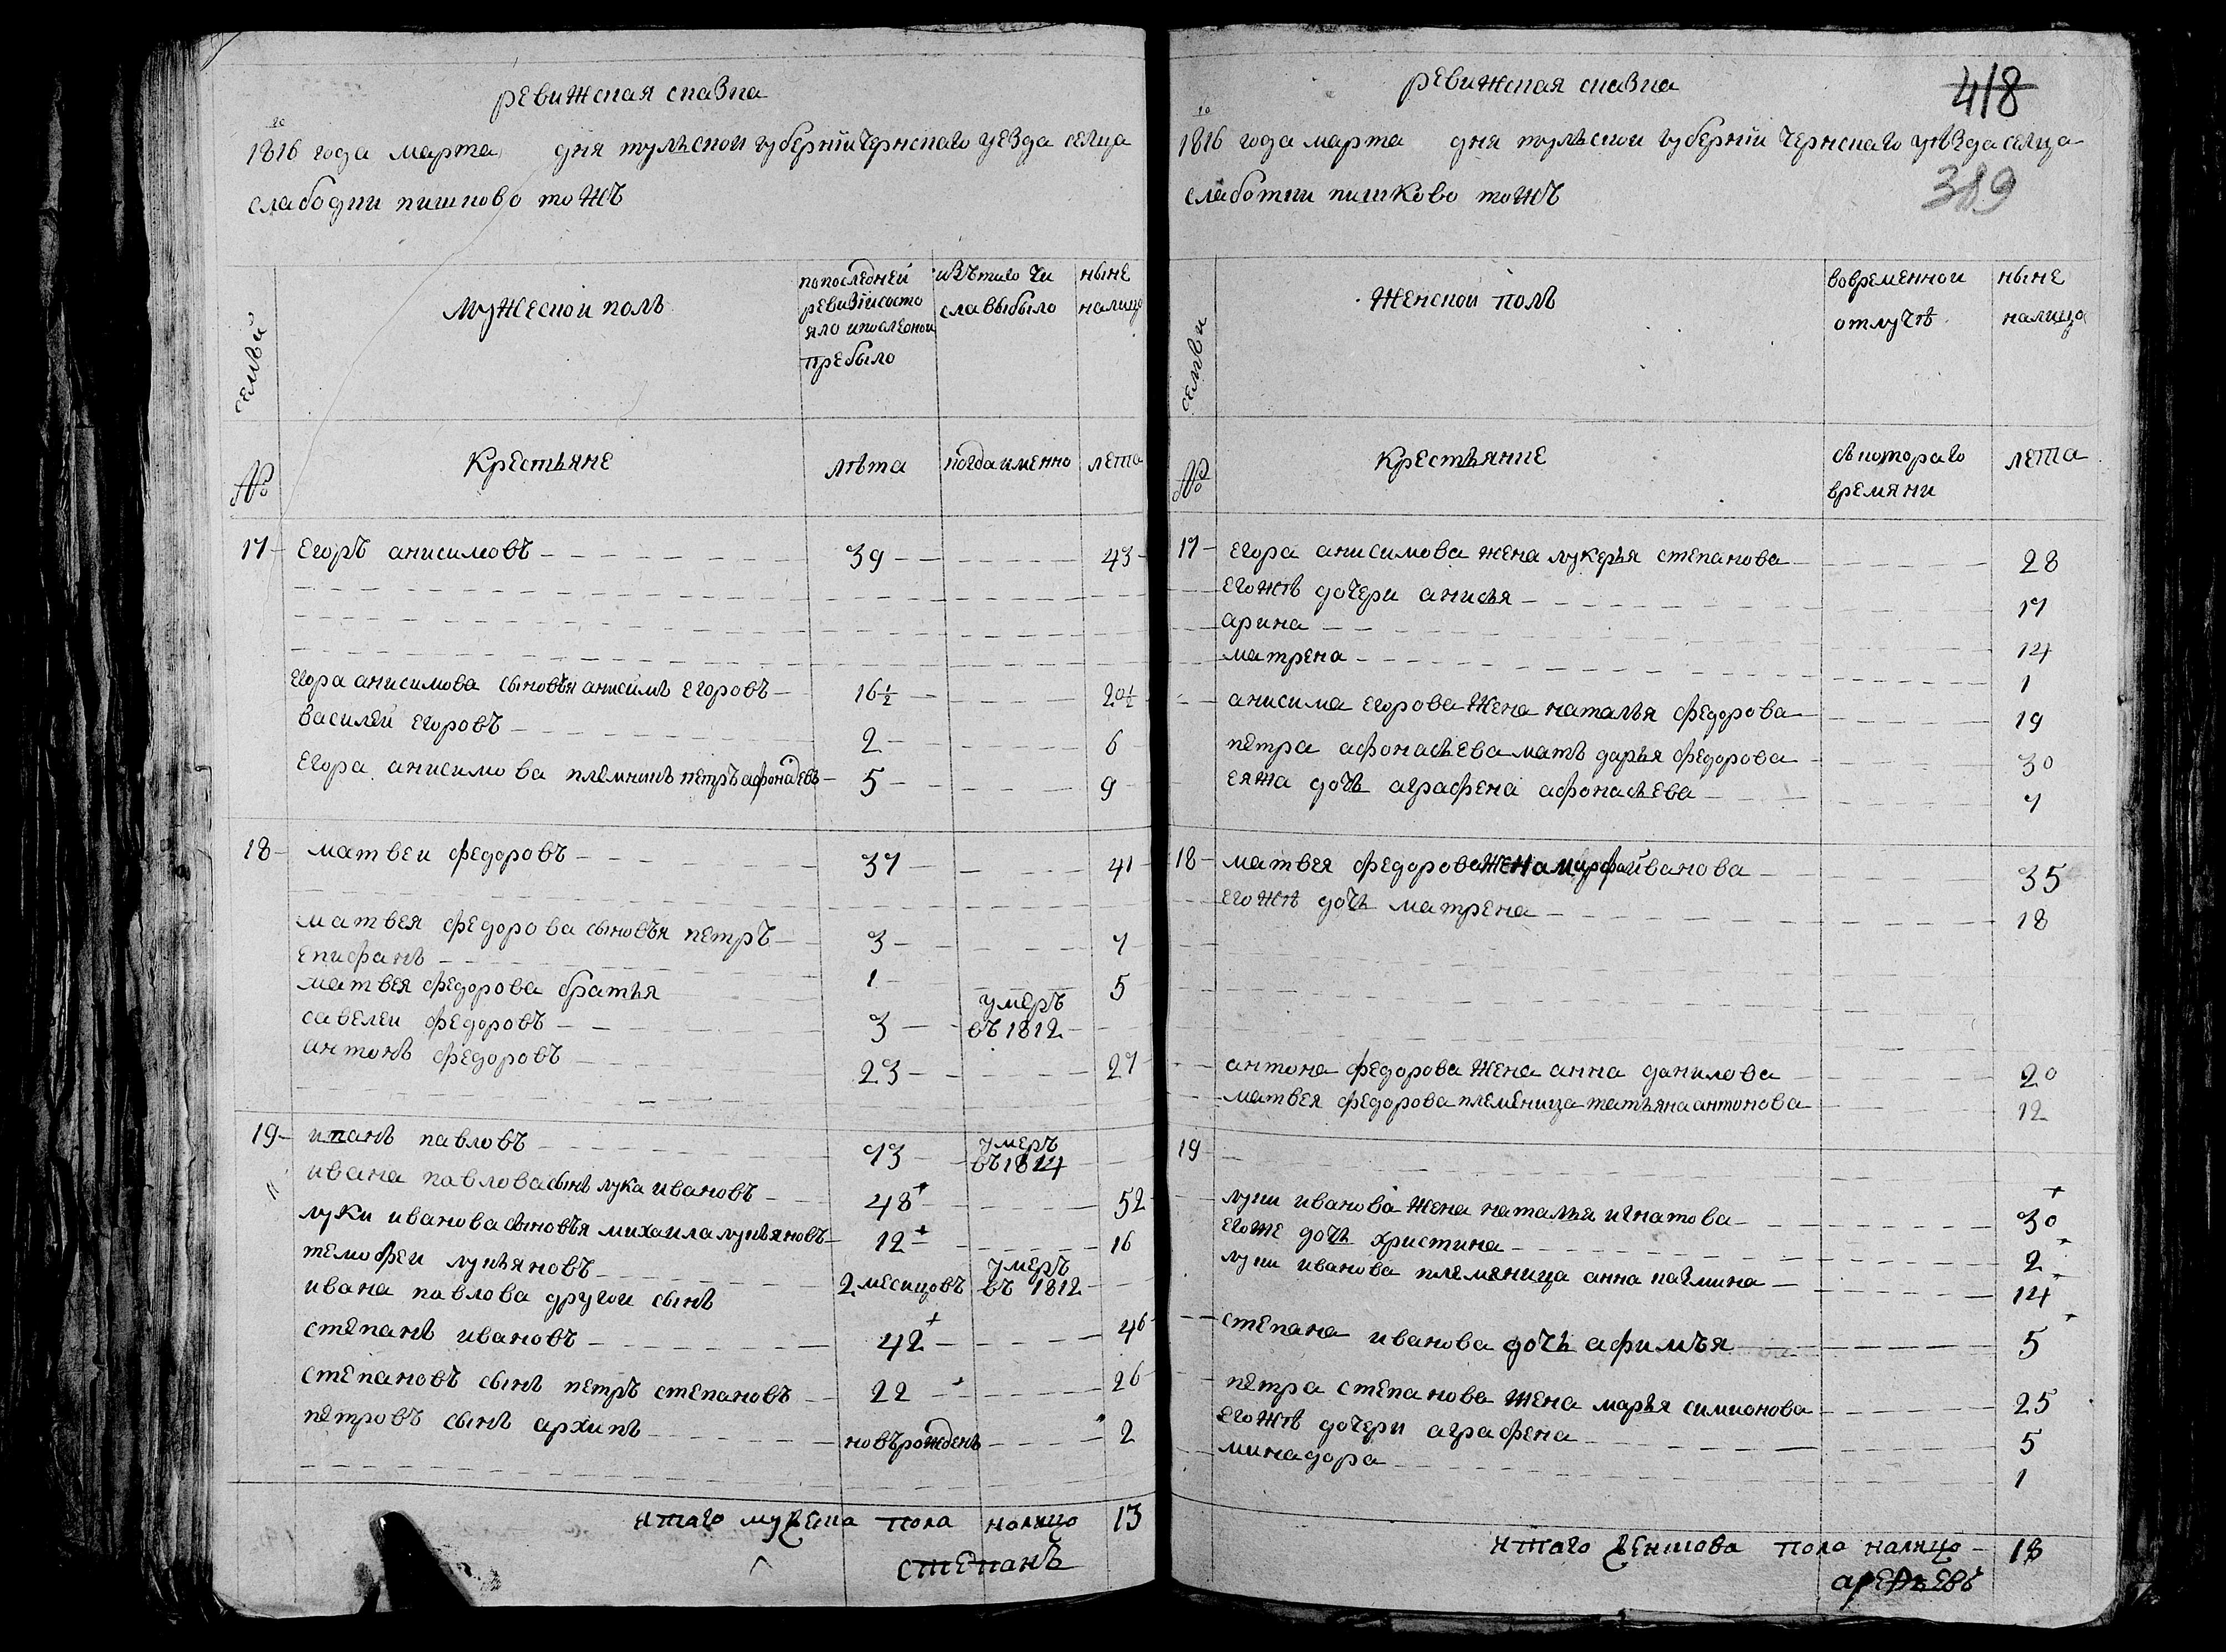 ревижская сказка
10
1816 года марта дня тульской губернiи чернскаго уезда селца
слабодки пишково тожъ
семьи
мужескои полъ
попоследней ревизiи состояло и после оной пребыло
изътаго числа выбыло
ныне налицо
№
Крестьяне
лѣта
когда именно
лета
17 Егоръ анисимовъ 39 43
Егора анисимова сыновья анисимъ Егоровъ 16½ 20½
василеи Егоровъ 2 6
Егора анисимова племникъ петръ афонасьевъ 5 9
18 матвеи федоровъ 37 41
матвея федорова сыновья петръ 3 7
Епифанъ 1 5
матвея федорова братья
савелеи федоровъ 3 умеръ въ 1812
антонъ федоровъ 23 27
19 иванъ павловъ 73 умеръ въ 1814
ивана павлова сынъ лука ивановъ 48 52
луки иванова сыновья михаила лукьяновъ 12 16
темофеи лукьяновъ 2 месяцовъ умеръ въ 1812
ивана павлова другои сынъ
степанъ ивановъ 42 46
степановъ сынъ петръ степановъ 22 26
петровъ сынъ архипъ новърожденъ 2
итаго мужеска пола налицо 13
степанъ
418
389
ревижская сказка
10
1816 года марта дня тульской губернiи чернскаго уѣзда селца
слаботки пишково тожъ
семьи
женскои полъ
вовременнои отлучѣ
ныне налицо
№
Крестьяние
съ котораго времяни
лета
17 Егора анисимова жена лукерья степанова 28
Егожѣ дочери анисья 17
арина 14
матрена 1
анисима Егорова жена наталья федорова 19
петра афонасьева мать дарья федорова 30
еяжа дочь аграфена афонасьева 7
18 матвея федорова жена марфа иванова 35
Егожѣ дочь матрена 18
антона федорова жена анна данилова 20
матвея федорова племеница татьяна антонова 12
19
луки иванова жена наталья игнатова 30
Егоже дочь христина 2
луки иванова племяница анна 14
степана иванова дочь афимъя 5
петра степанова жена марья симионова 25
Егожѣ дочери аграфена 5
минадора 1
итаго женскова пола налицо 18